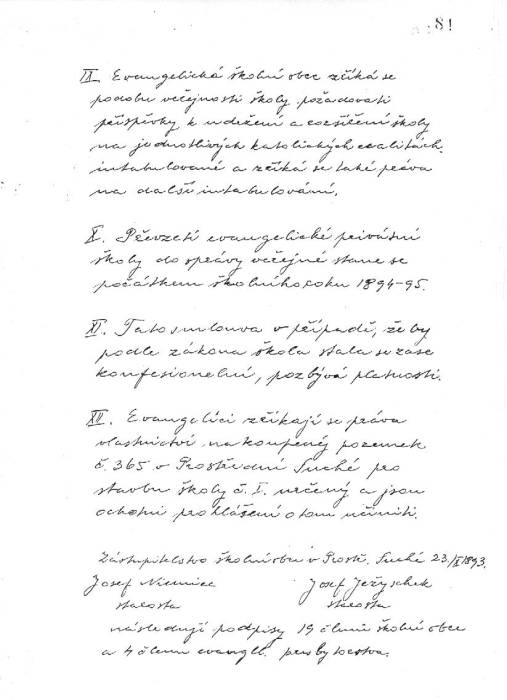 81
IX. Evangelická školní obec zříká se
podobu večejnosti školy požadovati
příspěvky k udržení a rozšíření školy
na jednotlivých katolických realitách
intabulované a zříká se také práva
na další intabulování.
X. Převzetí evangelické privátní
školy do správy veřejné stane se
počátkem školního roku 1894-95.
XI. Tato smlouva v případě, že by
podle zákona škola stala se zase
konfesionelní, pozbývá platnosti.
XII. Evangelíci zříkají se práva
vlastnictví na koupený pozemek
č. 365 v Prostřední Suché pro
stavbu školy č. I. určený a jsou
ochotni prohlášení o tom učiniti.
Zástupitelstvo školní obce v Prostř. Suché 23/X 1893.
Josef Niemiec Josef Ježyschek
starosta starosta
následují podpisy 19 členů školní obce
a 4 členů evangl. presbyterstva.